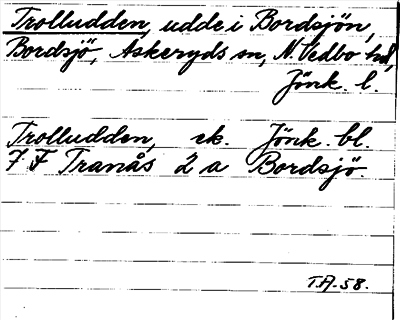 Trolludden, udde i Bordsjön,
Bordsjö, Askeryds sn, N. Vedbo hd,
Jönk. l.
Trolludden, ek. Jönk. bl.
7 F Tranås 2 a Bordsjö
T.A. 58.